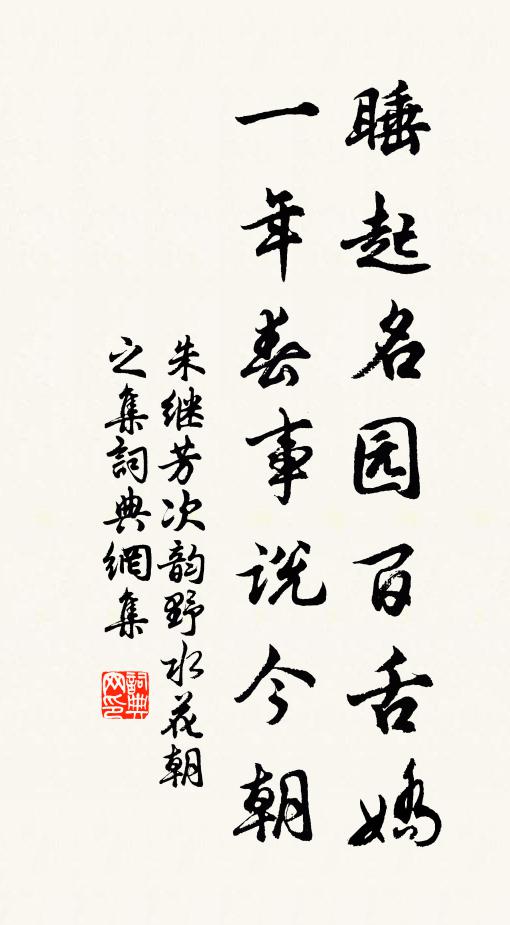 睡起名园百舌娇
一年春事说今朝
朱继芳次韵野水花朝
之集詞典網集
詞典
网印